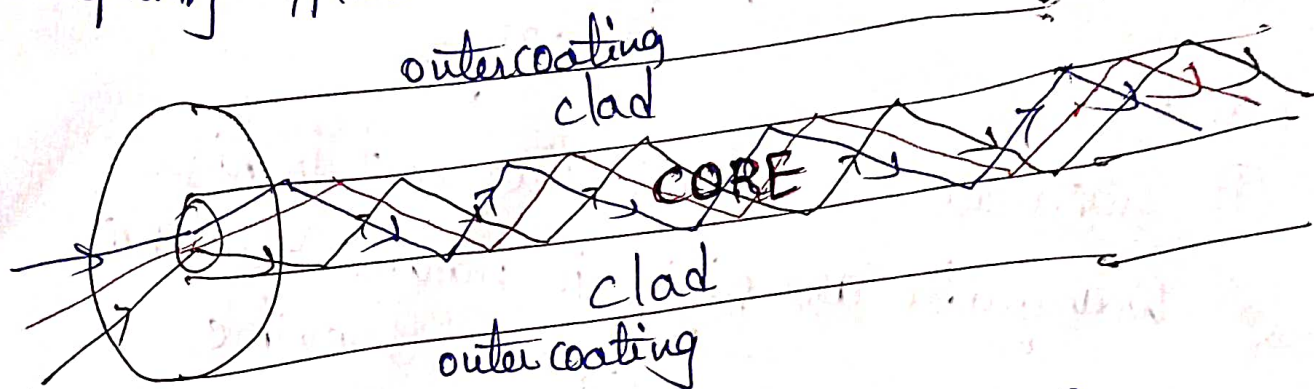 outercoating
clad
CORE
clad
outer coating